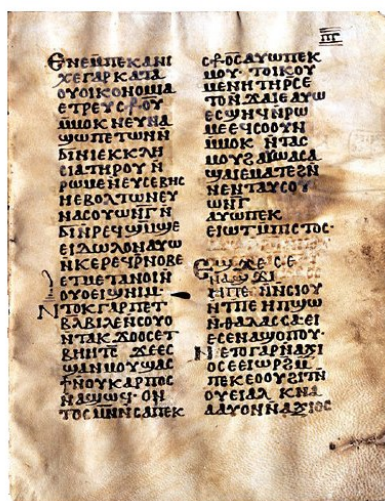 ⲉⲛⲉⲙ̅ⲡⲉⲕⲁⲛⲓ
ⲭⲉⲅⲁⲣⲕⲁⲧⲁ
ⲟⲩⲟⲓⲕⲟⲛⲟⲙⲓⲁ
ⲉⲧⲣⲉⲩⲥⳁⲟⲩ
ⲙ̅ⲙⲟⲕⲛⲉⲩⲛⲁ
ϣⲱⲡⲉⲧⲱⲛⲛ̅
ϭⲓⲛⲓⲉⲕⲕⲗⲏ
ⲥⲓⲁⲧⲏⲣⲟⲩⲛ̅
ⲣⲱⲙⲉⲛⲉⲩⲥⲉⲃⲏⲥ
ⲏⲉⲃⲟⲗⲧⲱⲛⲉⲩ
ⲛⲁⲥⲟⲩⲱⲛⲅ̅ⲛ̅
ϭⲓⲛⲣⲉϥϣⲙ̅ϣⲉ
ⲉⲓⲇⲱⲗⲟⲛⲁⲩⲱ
ⲛ̅ⲕⲉⲣⲉϥⲣ̅ⲛⲟⲃⲉ
ⲉⲧⲙⲉⲧⲁⲛⲟⲓⲛ̅
ⲟⲩⲟⲉⲓϣⲛⲓⲙ
ⲛ̅ⲧⲟⲕⲅⲁⲣⲡⲉⲧ
ⲃⲁⲃⲓⲗⲉⲛⲥⲟⲩⲟ
ⲛ̅ⲧⲁⲕϫⲟⲟⲥⲉⲧ
ⲃⲏⲏⲧϥ̅ϫⲉⲉⲥ
ϣⲁⲛⲙⲟⲩϣⲁⲥ
ϯⲛⲟⲩⲕⲁⲣⲡⲟⲥ
ⲛⲁϣⲱϥ·ⲟⲛ
ⲧⲟⲥⲙⲛⲛ̅ⲥⲁⲡⲉⲕ
ⲥⳁⲟⲥⲁⲩⲱⲡⲉⲕ
ⲙⲟⲩ·ⲧⲟⲓⲕⲟⲩ
ⲙⲉⲛⲏⲧⲏⲣⲥ̅ⲉ
ⲧⲟⲛ̅ϫⲁⲓⲉⲁⲩⲱ
ⲉⲥϣⲏϥⲛ̅ⲣⲱ
ⲙⲉⲉⲩⲥⲟⲟⲩⲛ
ⲙ̅ⲙⲟⲕⲛ̅ⲧⲁⲥ
ⲙⲟⲩϩⲁϣⲁⲥⲁ
ϣⲁⲓⲉⲙⲁⲧⲉϩⲛ̅
ⲛⲉⲛⲧⲁⲩⲥⲟⲩ
ⲱⲛⲅ̅
ⲁⲩⲱⲡⲉⲕ
ⲉⲓⲱⲧⲙ̅ⲡⲓⲥⲧⲟⲥ·
ⲉϣϫⲉⲥⲉ
ⲛⲁϣϫⲓ
ⲏⲡⲉⲛ̅ⲛ̅ⲥⲓⲟⲩ
ⲛ̅ⲧⲡⲉⲏⲡϣⲱ
ⲛ̅ⲑⲁⲗⲁⲥⲥⲁ·ⲉⲓ
ⲉⲥⲉⲛⲁϣⲟⲡⲟⲩ·
ⲛⲉⲧⲟⲅⲁⲣⲛ̅ⲁϫⲓ
ⲟⲥⲉⲉⲓⲱⲣϩϣⲓ
ⲡⲉⲕⲉⲟⲟⲩϩⲓⲧⲛ̅
ⲟⲩⲉⲓⲁⲗ ⲕⲛⲁ
ⲁⲁⲩⲟⲛⲛ̅ⲁⲝⲓⲟⲥ